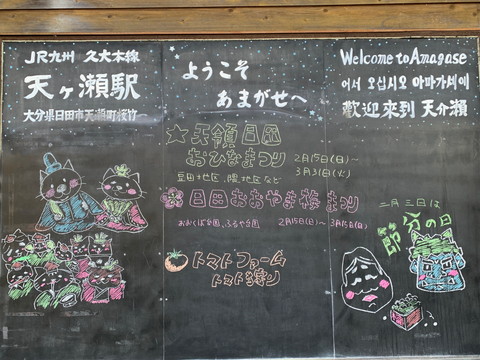 JR九州 久大本線
天ヶ瀬駅
大分県日田市天瀬町桜竹
ようこそ
あまがせへ
Welcome to Amagase
어서 오십시오 아마가세에
歡迎來到 天介瀨
★天領日田
おひなまつり
2月15日(日)〜
3月31日(火)
豆田地区、隈地区など
日田おおやま梅まつり
おおくぼ台園、ふるや台園 2月15日(日)〜3月15日(日)
トマトファーム
トマト狩り
二月三日は
節分の日